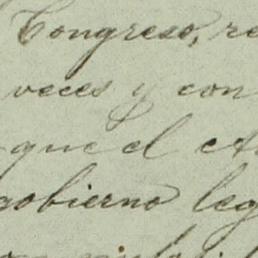 Congreso, re
veces y con
que el
gobierno leg